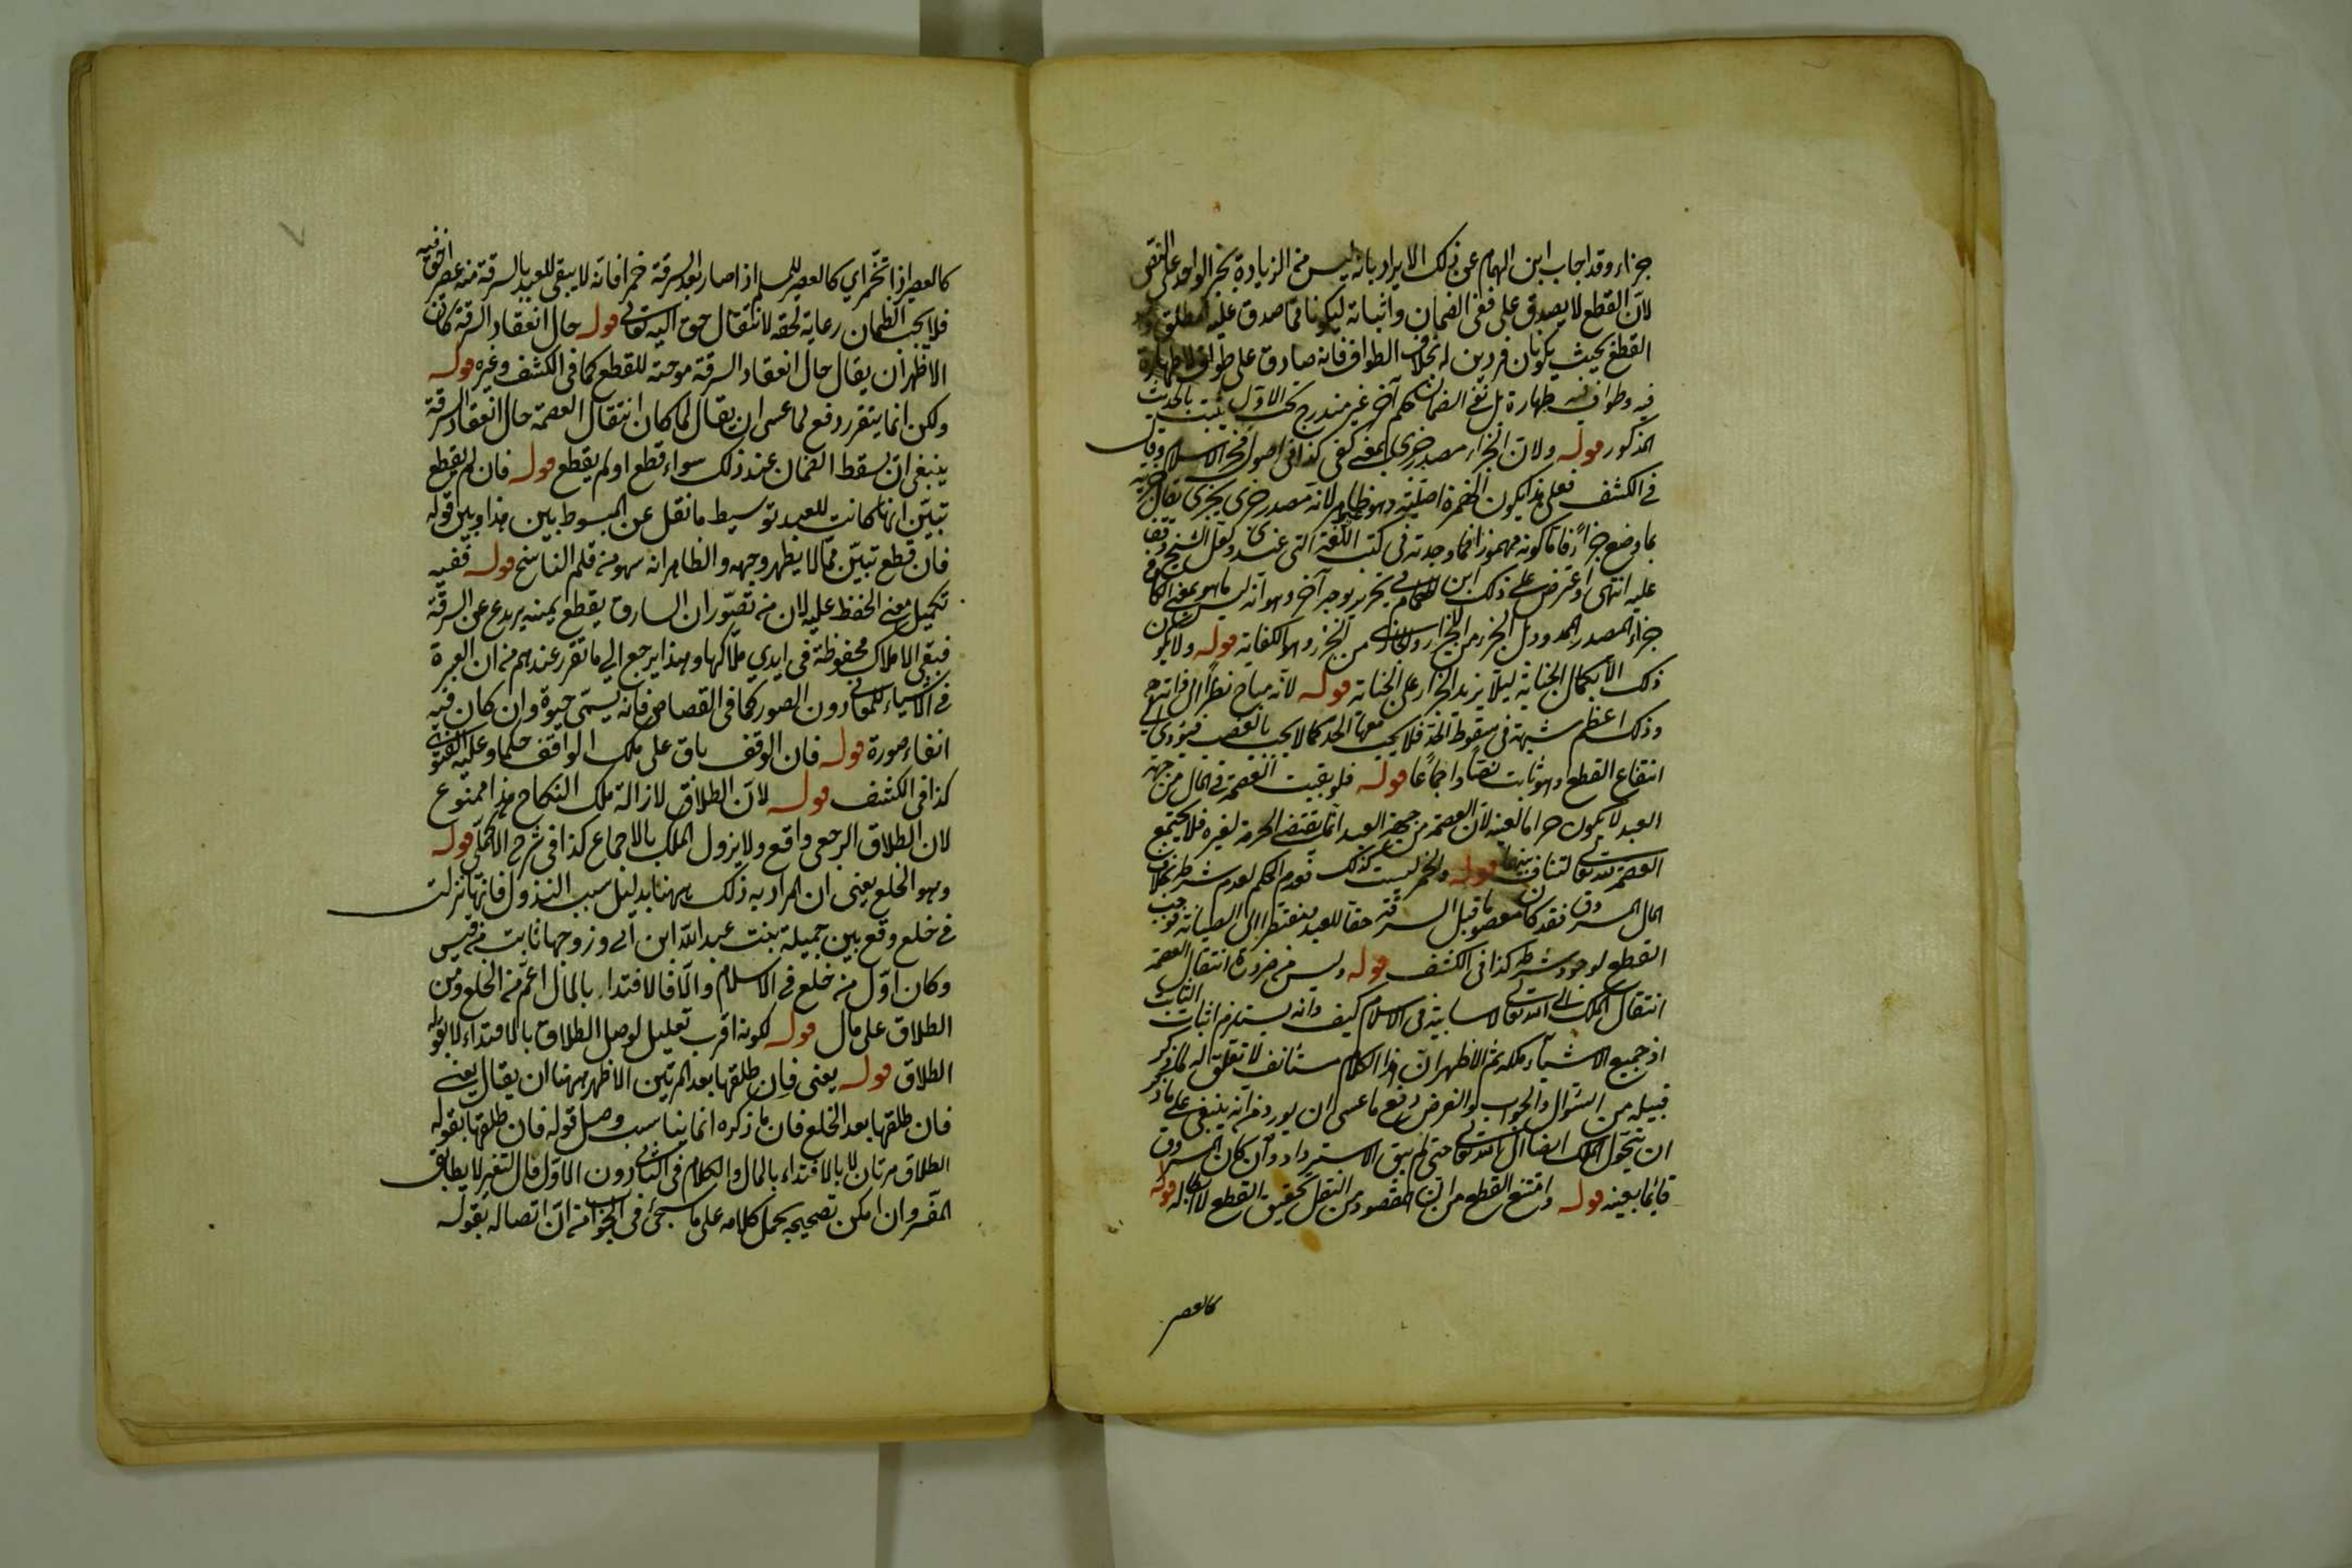 جزاء وقد اجاب ابن الهمام عن ذلك الايراد بانه ليس من الزيادة بخبر الواحد على النص
لان القطع لا يصدق على نفي الضمان واثباته ليكونا مما صدق عليه مطلق
القطع بحيث يكونان فردين له بخلاف الطواف فانه صادق على طواف لا طهارة
فيه وطواف فيه طهارة بل نفي الضمان حكم آخر غير مندرج تحت الاول ثبت بالحديث
المذكور قوله ولان الجزاء مصدر جزى بمعنى كفى كذا في اصول فخر الاسلام وقال
في الكشف فعلى هذا يكون الهمزة اصلية وهو ظاهر لانه مصدر جزى يجزى يقال جزيته
بما وضع جزاء فاما كونه مهموزا فما وجدته في كتب اللغة التي عندي ولعل الشيخ وقف
عليه انتهى واعترض على ذلك ابن الهمام في تحريره بوجه آخر وهو انه ليس ما هو بمعنى الكافي
جزاء المصدر الممدود بل الجزء من الاجزاء والجازي من الجزء وهو الكفاية قوله ولا يكون
ذلك الا بكمال الجناية ليلا يزيد الجزاء على الجناية قوله لانه مباح نظرا الى ذاته
وذلك اعظم شبهة في سقوط الحد فلا يجب معها الحد كما لا يجب بالغصب فيؤدي الى
انتفاع القطع وهو ثابت نصا واجماعا قوله فلو بقيت العصمة في المال من جهة
العبد لا يكون حراما لعينه لان العصمة من جهة العبد انما تقتضي الحرمة لغيره فلا يجتمع
العصمة لله تعالى لتناف بينهما قوله والخمر ليست كذلك فعدم الحكم لعدم شرطه بخلاف
المال المسروق فقد كان معصوما قبل السرقة حقا للعبد مفتقرا الى الصيانة فوجب
القطع لوجود شرطه كذا في الكشف قوله وليس من ضرورة انتقال العصمة
انتقال الملك الى الله تعالى لا سايبة في الاسلام كيف وانه يستلزم اثبات الثابت
اذ جميع الاشياء ملكه ثم الاظهر ان هذا الكلام مستأنف لا تعلق له لما ذكر
قبيله من السؤال والجواب والغرض دفع ما عسى ان يورد من انه ينبغي على ما ذكر
ان يتحول الملك ايضا الى الله تعالى حتى لم يبق الاسترداد وان كان المسروق
قائما بعينه قوله وامتنع القطع مر ان المقصود من النقل تحقيق القطع لا ابطاله قوله
كالعصير
كالعصير اذا تخمر اي كالعصير للمسلم اذا صار بعد السرقة خمرا فانه لا يبقى للعبد بالسرقة منه عصير حق فيه
فلا يجب الضمان رعاية لحقه لانتقال حق اليه تعالى قوله حال انعقاد السرقة كان
الاظهر ان يقال حال انعقاد السرقة موجبة للقطع كما في الكشف وغيره قوله
ولكن انما يتقرر دفع لما عسى ان يقال لما كان انتقال العصمة حال انعقاد السرقة
ينبغي ان يسقط الضمان عند ذلك سواء قطع او لم يقطع قوله فان لم يقطع
تبين انها كانت للعبد توسيط ما نقل عن المبسوط بين هذا وبين قوله
فان قطع تبين مما لا يظهر وجهه والظاهر انه سهو من قلم الناسخ قوله ففيه
تكميل معنى الحفظ عليه لان من تصور ان السارق يقطع يمينه يرتدع عن السرقة
فبقي الاملاك محفوظة في ايدي ملاكها وهذا يرجع الى ما تقرر عندهم من ان العبرة
في الاشياء للمعاني دون الصور كما في القصاص فانه يسمى حيوة وان كان فيه
انفاء صورة قوله فان الوقف باق على ملك الواقف حكما وعليه الفتوى
كذا في الكشف قوله لان الطلاق لازالة ملك النكاح هذا ممنوع
لان الطلاق الرجعي واقع ولا يزول الملك بالاجماع كذا في شرح الاكمل قوله
وهو الخلع يعني ان المراد به ذلك ههنا بدليل سبب النزول فانها نزلت
في خلع وقع بين جميلة بنت عبد الله ابن ابي وزوجها ثابت من قيس
وكان اول من خلع في الاسلام والا فالافتداء بالمال اعم من الخلع ومن
الطلاق على مال قوله لكونه اقرب تعليل لوصل الطلاق بالافتداء لا بقوله
الطلاق قوله يعني فان طلقها بعد المرتين الاظهر ههنا ان يقال يعني
فان طلقها بعد الخلع فان ما ذكره انما يناسب وصل قوله فان طلقها بقوله
الطلاق مرتان لا بالافتداء بالمال والكلام في الثاني دون الاول فالتفسير لا يطابق
المفسر وان امكن تصحيحه بحمل كلامه على ما سيجئ في الجواب من ان اتصاله بقوله